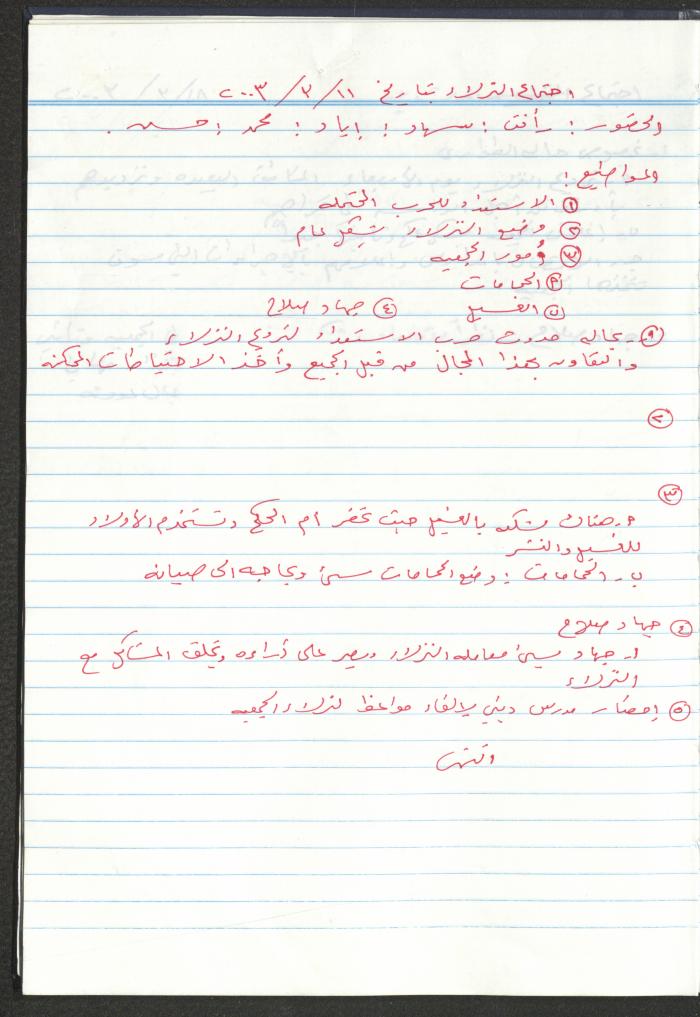 اجتماع النزلاء بتاريخ ١١/٣/٢٠٠٣
الحضور : رأفت : سهاد : إياد : محمد : حسين .
المواضيع :
① الاستعداد للحرب المحتمله
② وضع النزلاء بشكل عام
③ أمور الجمعيه
أ) الحمامات
ب) الغسيل ④ جهاد صلاح
① بحاله حدوث حرب الاستعداد النزلاء
والتعاون بهذا المجال من قبل الجميع وأخذ الاحتياطات الممكنه
②
③
أ- هناك مشكله بالغسيل حيث تحضر ام الحكم وتستخدم الأولاد
للغسيل والنشر
ب- الحمامات : وضع الحمامات سيئ وبحاجه الى صيانه
④ جهاد صلاح
أ- جهاد يسيئ معامله النزلاء ويصر على آراءه ويخلق المشاكل مع
النزلاء
⑤ إحضار مدرس ديني لإلقاء مواعظ لنزلاء الجمعيه
انتهى